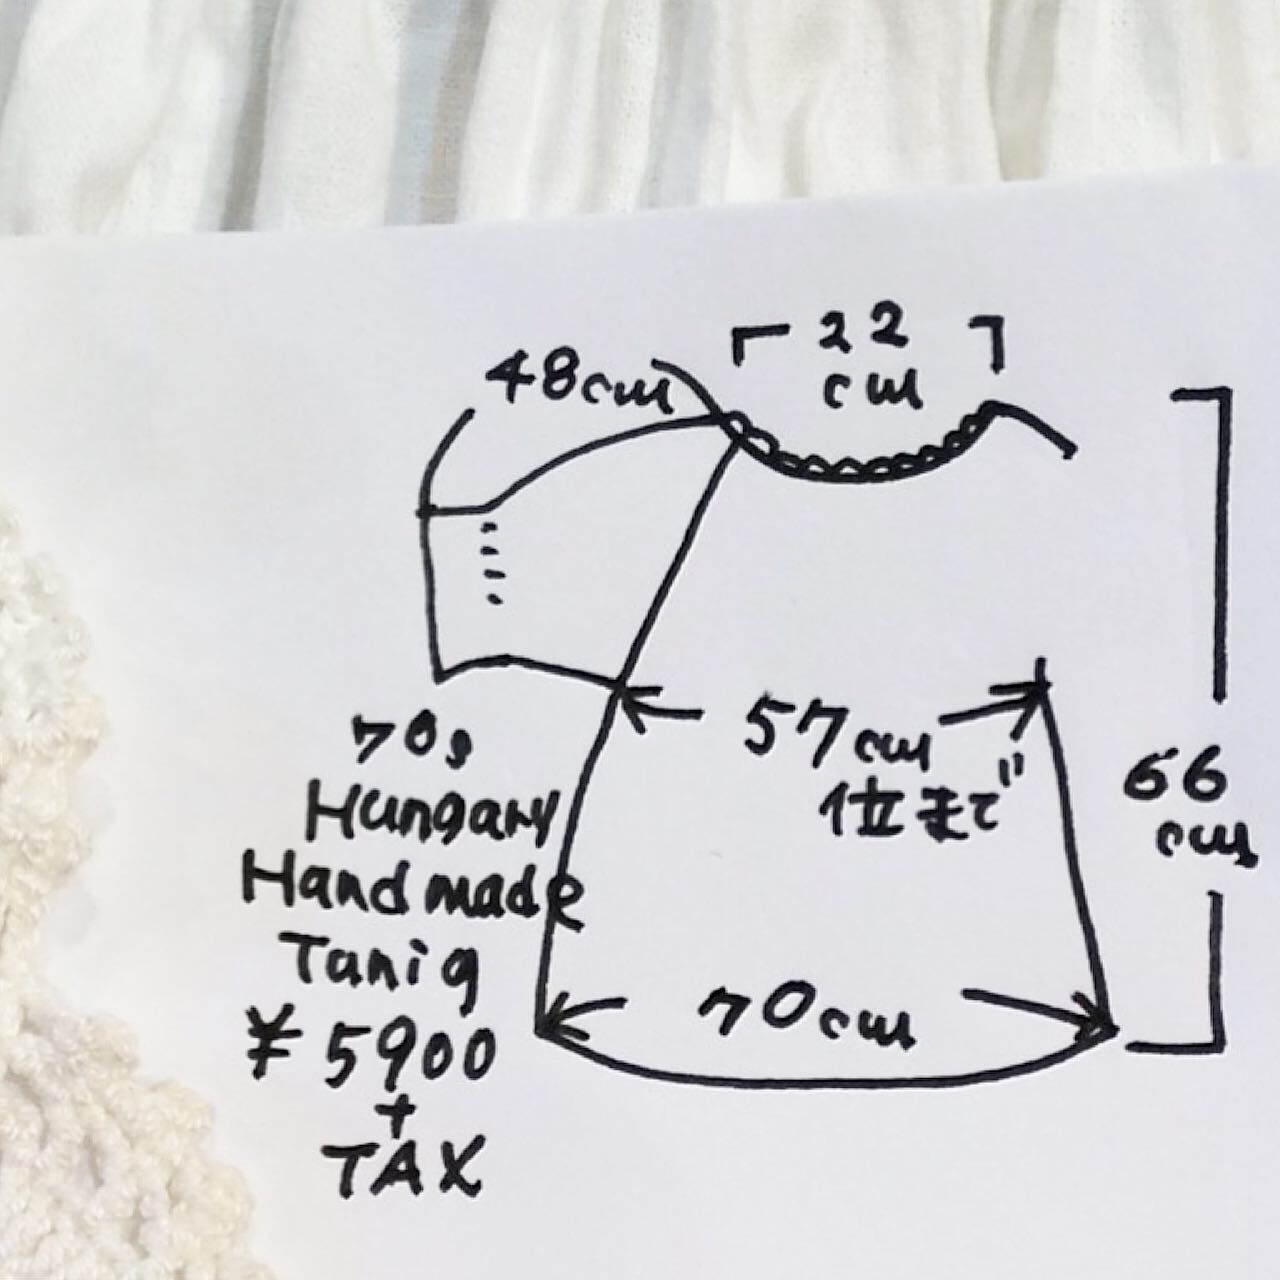 22
cm
48cm
57cm
位まで
66
cm
70s
Hungary
Hand made
Taniq
¥5900
+
TAX
70cm